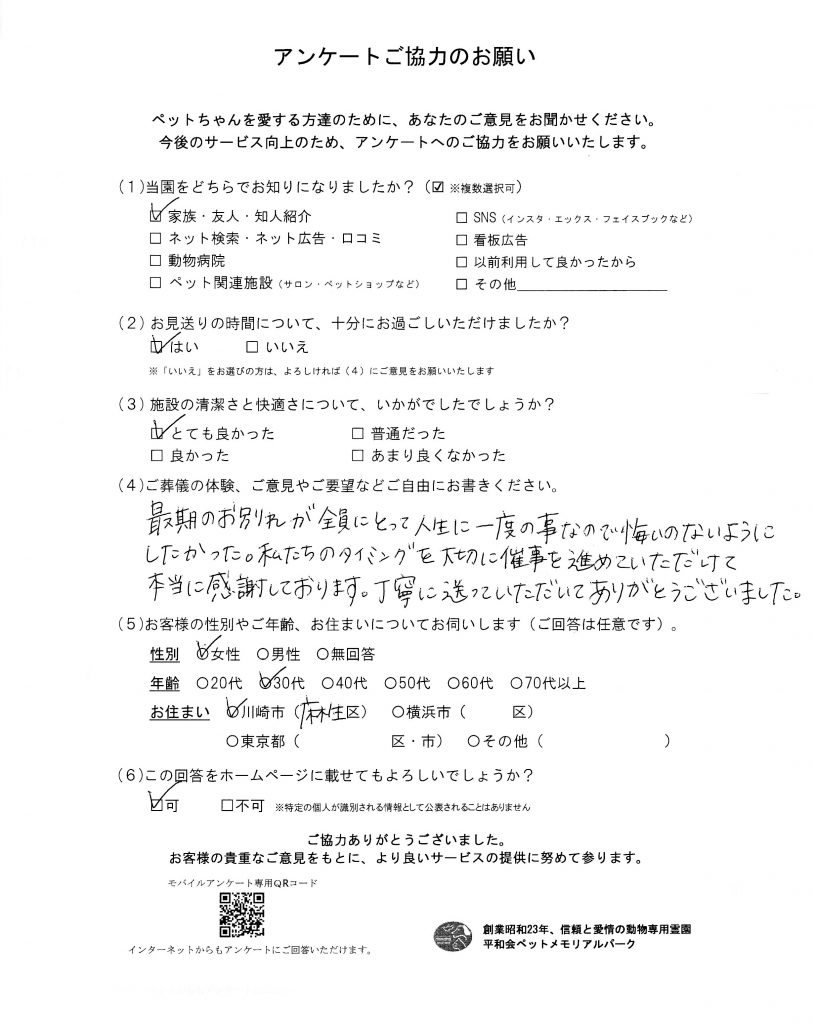 アンケートご協力のお願い
ペットちゃんを愛する方達のために、あなたのご意見をお聞かせください。
今後のサービス向上のため、アンケートへのご協力をお願いいたします。
(1)当園をどちらでお知りになりましたか？(☑ ※複数選択可)
☑ 家族・友人・知人紹介 □ SNS (インスタ・エックス・フェイスブックなど)
□ ネット検索・ネット広告・口コミ □ 看板広告
□ 動物病院 □ 以前利用して良かったから
□ ペット関連施設 (サロン・ペットショップなど) □ その他
(2) お見送りの時間について、十分にお過ごしいただけましたか？
☑ はい □ いいえ
※「いいえ」をお選びの方は、よろしければ(4)にご意見をお願いいたします
(3) 施設の清潔さと快適さについて、いかがでしたでしょうか？
☑ とても良かった □ 普通だった
□ 良かった □ あまり良くなかった
(4)ご葬儀の体験、ご意見やご要望などご自由にお書きください。
最期のお別れが全員にとって人生に一度の事なので悔いのないように
したかった。私たちのタイミングを大切に催事を進めていただけて
本当に感謝しております。丁寧に送っていただいてありがとうございました。
(5)お客様の性別やご年齢、お住まいについてお伺いします（ご回答は任意です）。
性別 ☑女性 ○男性 ○無回答
年齢 ○20代 ☑30代 ○40代 ○50代 ○60代 ○70代以上
お住まい ☑川崎市（麻生区） ○横浜市（ 区）
○東京都（ 区・市） ○その他（ ）
(6)この回答をホームページに載せてもよろしいでしょうか？
☑可 □不可 ※特定の個人が識別される情報として公表されることはありません
ご協力ありがとうございました。
お客様の貴重なご意見をもとに、より良いサービスの提供に努めて参ります。
モバイルアンケート専用QRコード
インターネットからもアンケートにご回答いただけます。
創業昭和23年、信頼と愛情の動物専用霊園
平和会ペットメモリアルパーク